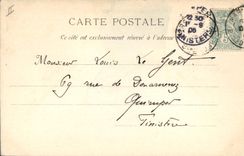 CARTE POSTALE
Ce côté est exclusivement réservé à l'adresse
Monsieur Louis Le Gent
69 rue de Douarnenez
Quimper
Finistère